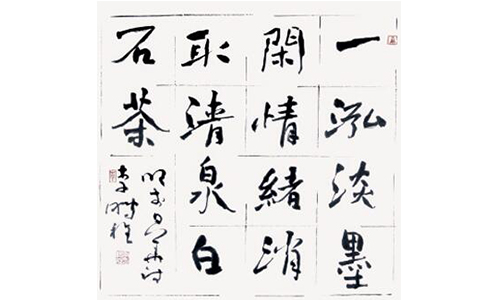 一泓淡墨
閑情緒消
取清泉白
石茶